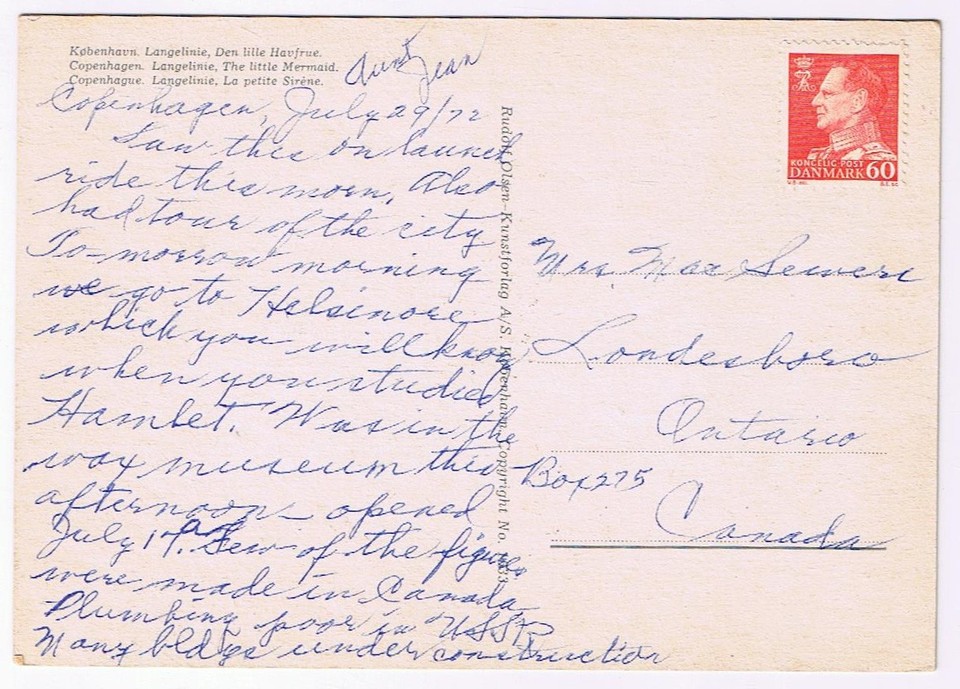 København. Langelinie, Den lille Havfrue.
Copenhagen. Langelinie, The little Mermaid.
Copenhague. Langelinie, La petite Sirène.
Aunt Jean
Copenhagen, July 29/72
Saw this on launch
ride this morn. Also
had tour of the city
To-morrow morning
we go to Helsinore
which you will know
when you studied
Hamlet. Was in the
wax museum this
afternoon - opened
July 17. A few of the figures
were made in Canada
Plumbing poor in USSR
Many bldgs under construction
Rudolf Olsen-Kunstforlag A/S København. Copyright No.
KONGELIG POST
DANMARK 60
Mrs. Max
Londesboro
Ontario
Box 275
Canada